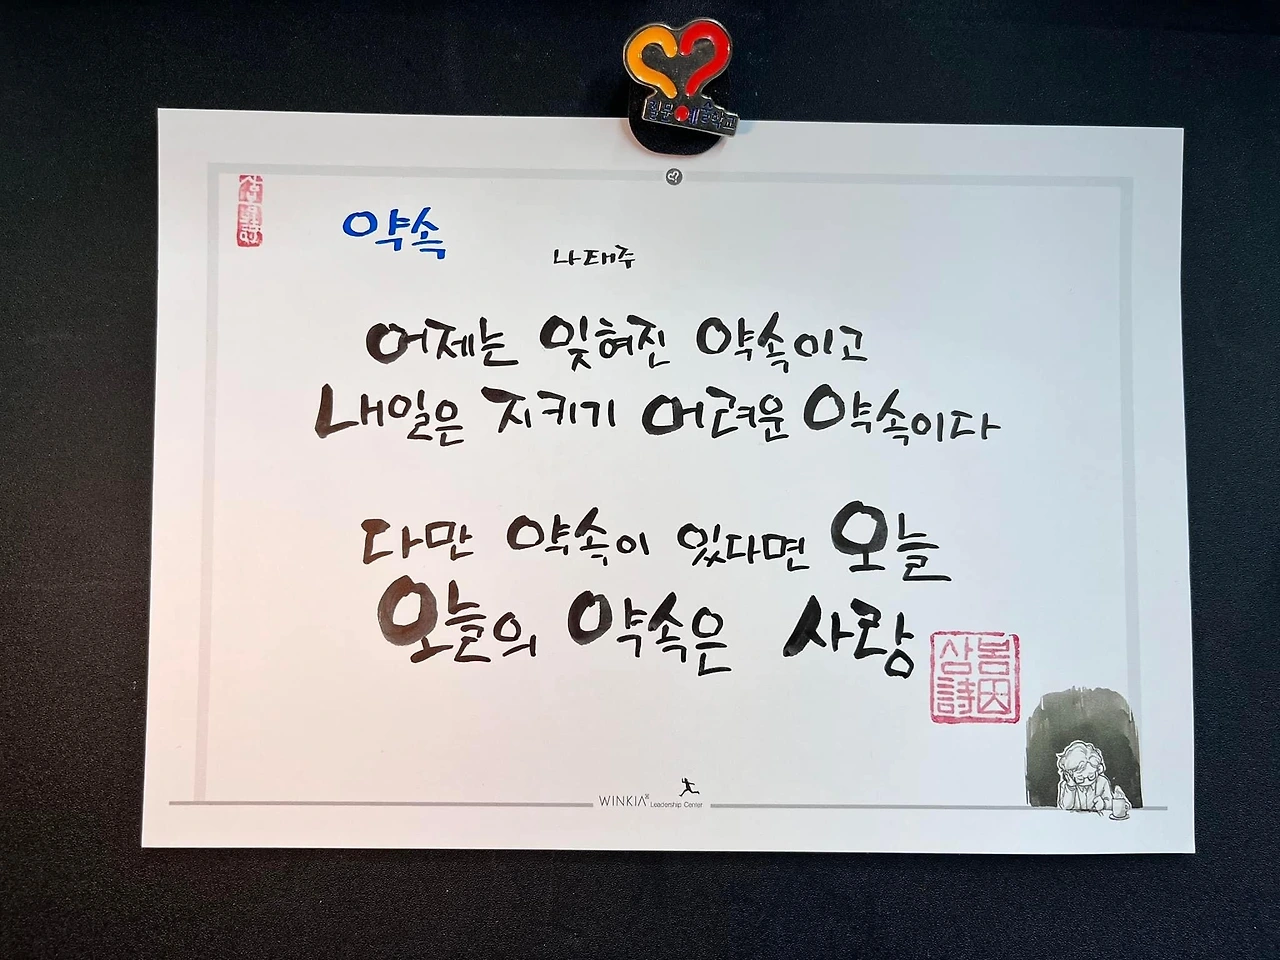 약속
나태주
어제는 잊혀진 약속이고
내일은 지키기 어려운 약속이다
다만 약속이 있다면 오늘
오늘의 약속은 사랑
WINKIA Leadership Center